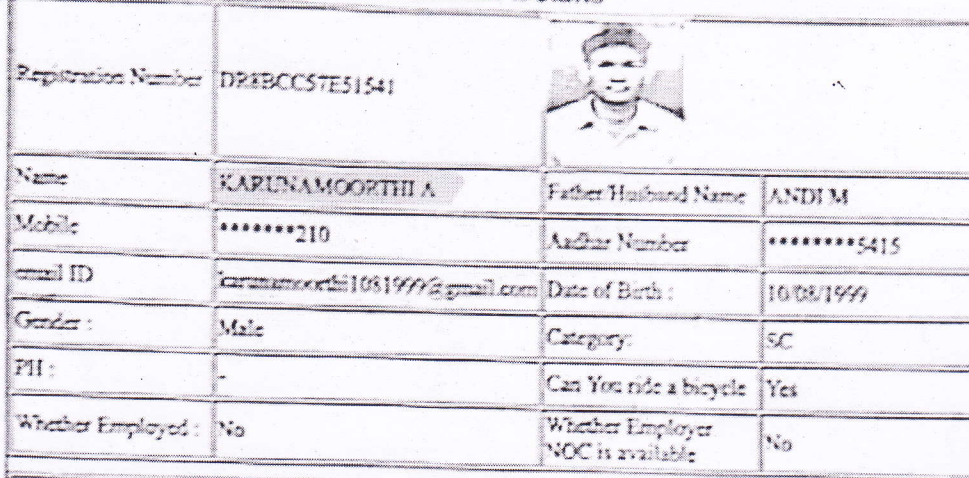 Registration Number DR8BCC57E51541
Name KARUNAMOORTHI A Father/Husband Name ANDI M
Mobile *******210 Aadhar Number ********5415
email ID karunamoorthi1081999@gmail.com Date of Birth : 10/08/1999
Gender : Male Category: SC
PH : - Can You ride a bicycle Yes
Whether Employed : No Whether Employer
NOC is available No